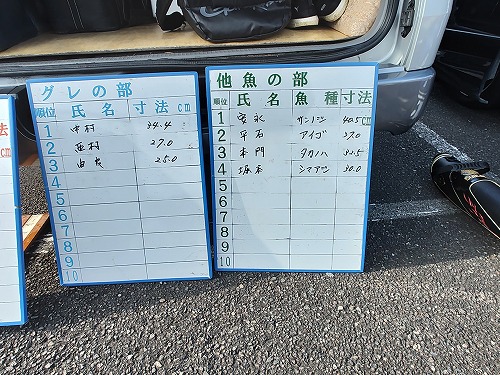 グレの部
順位 氏名 寸法cm
1 中村 34.4
2 西村 27.0
3 由良 25.0
4
5
6
7
8
9
10
他魚の部
順位 氏名 魚種 寸法
1 サンノジ 40.5cm
2 平石 アイゴ 37.0
3 本門 タカノハ
4 坂本 シマアジ 30.0
5
6
7
8
9
10
法
cm